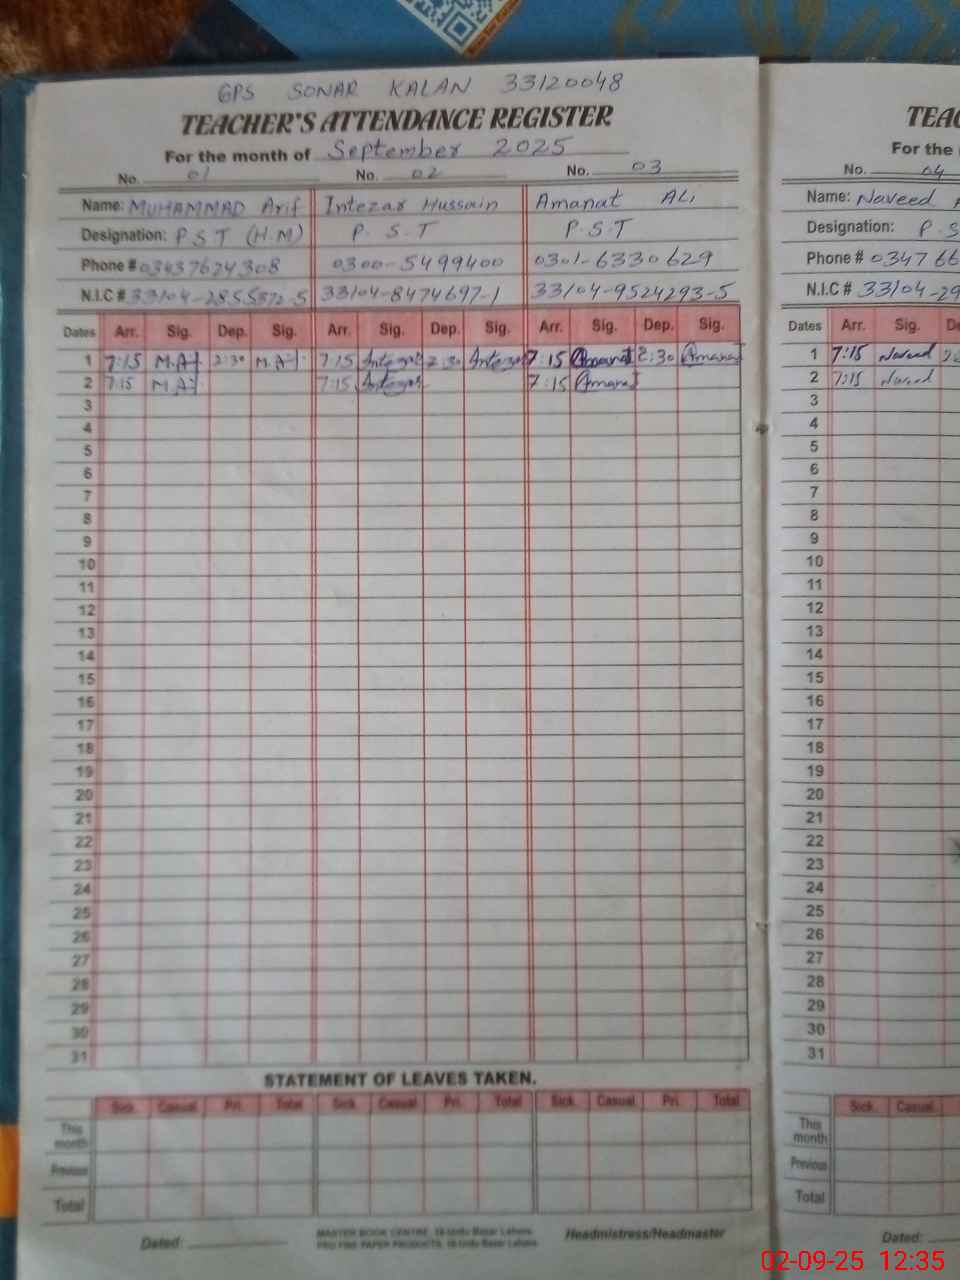 GPS SONAR KALAN 33120048
TEACHER'S ATTENDANCE REGISTER
For the month of September 2025
No. 01 No. 02 No. 03
Name: MUHAMMAD Arif Intezar Hussain Amanat ALi
Designation: P S T (H.M) P. S. T P.S.T
Phone # 03437624308 0300-5499400 0301-6330629
N.I.C # 33104-2855372-5 33104-8474697-1 33104-9524293-5
Dates Arr. Sig. Dep. Sig. Arr. Sig. Dep. Sig. Arr. Sig. Dep. Sig.
1 7:15 M.A 2:30 M.A 7:15 Intezar 2:30 Intezar 7:15 Amanat 2:30 Amanat
2 7:15 M.A 7:15 Intezar 7:15 Amanat
3
4
5
6
7
8
9
10
11
12
13
14
15
16
17
18
19
20
21
22
23
24
25
26
27
28
29
30
31
STATEMENT OF LEAVES TAKEN.
Sick. Casual Pri. Total Sick. Casual Pri. Total Sick. Casual Pri. Total
This month
Previous
Total
Dated:
MASTER BOOK CENTRE. 18-Urdu Bazar Lahore.
PRO FINE PAPER PRODUCTS. 18-Urdu Bazar Lahore.
Headmistress/Headmaster
TEAC
For the
No. 04
Name: Naveed
Designation: P.S
Phone # 0347 66
N.I.C # 33104-29
Dates Arr. Sig. De
1 7:15 Naveed
2 7:15 Naveed
3
4
5
6
7
8
9
10
11
12
13
14
15
16
17
18
19
20
21
22
23
24
25
26
27
28
29
30
31
Sick. Casual
This month
Previous
Total
Dated:
02-09-25 12:35